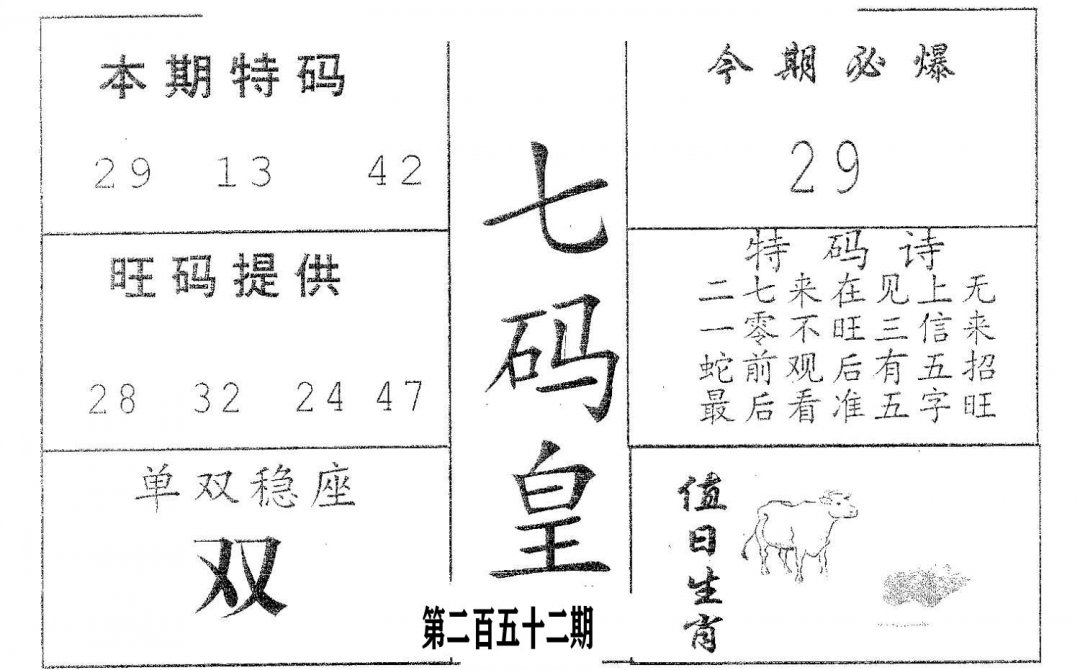 本期特码
29 13 42
旺码提供
28 32 24 47
单双稳座
双
七码皇
第二百五十二期
今期必爆
29
特码诗
二七来在见上无
一零不旺三信来
蛇前观后有五招
最后看准五字旺
值日生肖